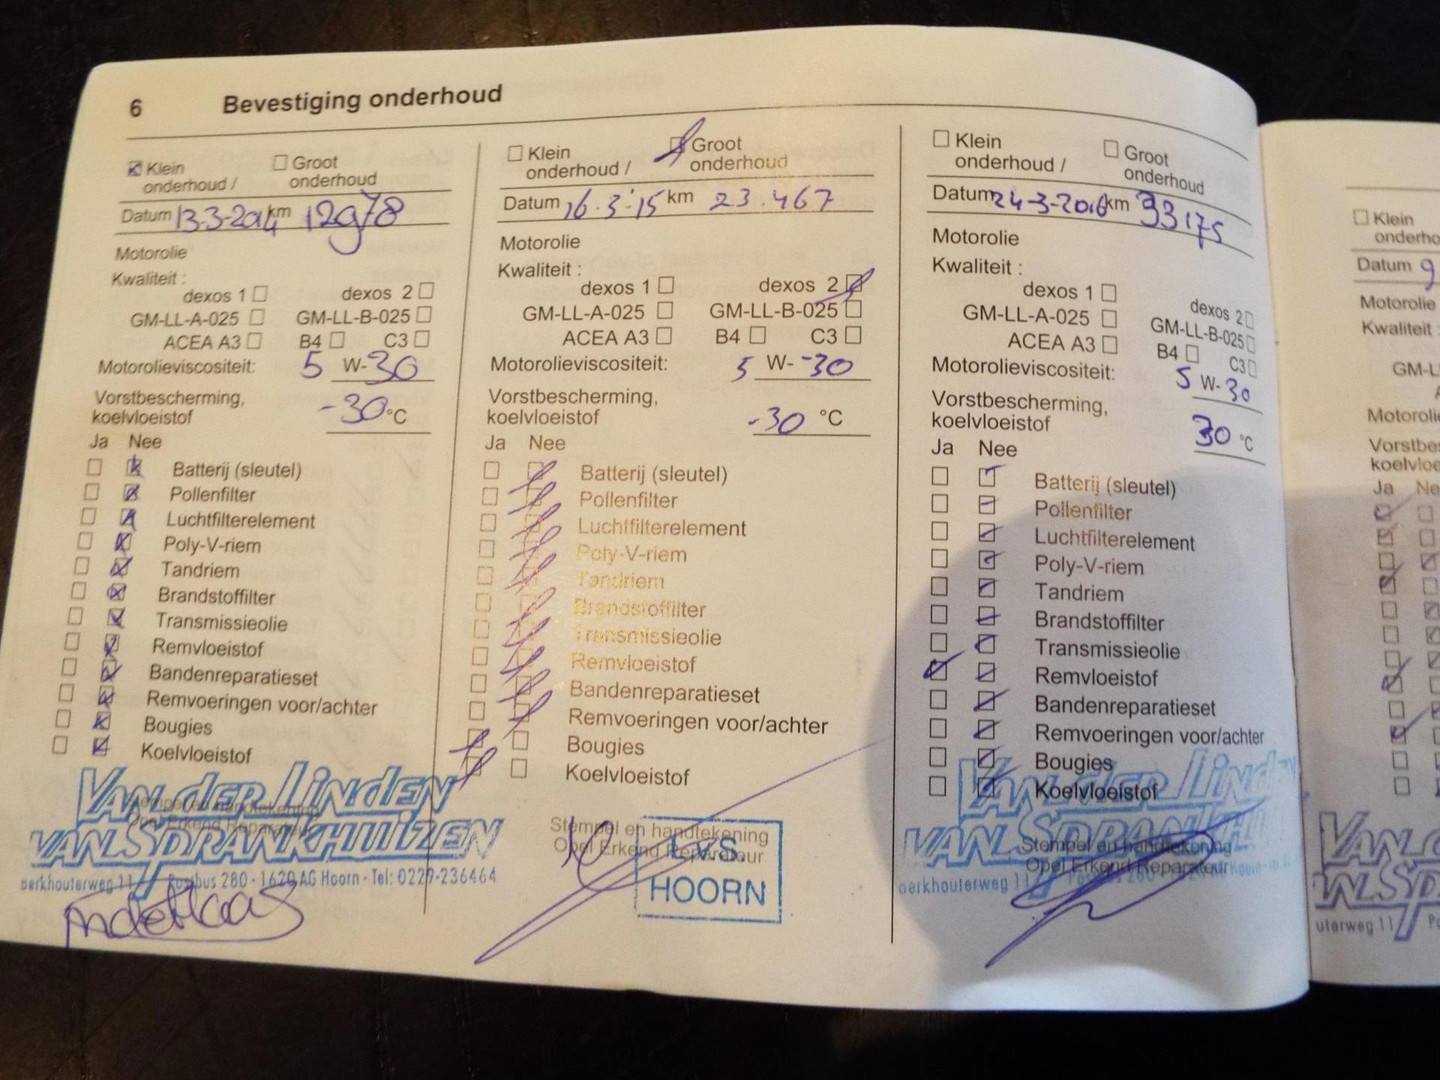 6 Bevestiging onderhoud
Klein onderhoud / Groot onderhoud
Datum 13-3-2014 km 12978
Motorolie
Kwaliteit :
dexos 1 dexos 2
GM-LL-A-025 GM-LL-B-025
ACEA A3 B4 C3
Motorolieviscositeit: 5 W-30
Vorstbescherming,
koelvloeistof -30 °C
Ja Nee
Batterij (sleutel)
Pollenfilter
Luchtfilterelement
Poly-V-riem
Tandriem
Brandstoffilter
Transmissieolie
Remvloeistof
Bandenreparatieset
Remvoeringen voor/achter
Bougies
Koelvloeistof
Stempel en handtekening
Opel Erkend Reparateur
VAN der LINDEN
VAN SPRANKHUIZEN
berkhouterweg 11 Postbus 280 - 1620 AG Hoorn - Tel: 0229-236464
Klein onderhoud / Groot onderhoud
Datum 16-3-'15 km 23.467
Motorolie
Kwaliteit :
dexos 1 dexos 2
GM-LL-A-025 GM-LL-B-025
ACEA A3 B4 C3
Motorolieviscositeit: 5 W- -30
Vorstbescherming,
koelvloeistof -30 °C
Ja Nee
Batterij (sleutel)
Pollenfilter
Luchtfilterelement
Poly-V-riem
Tandriem
Brandstoffilter
Transmissieolie
Remvloeistof
Bandenreparatieset
Remvoeringen voor/achter
Bougies
Koelvloeistof
Stempel en handtekening
Opel Erkend Reparateur
LVS
HOORN
Klein onderhoud / Groot onderhoud
Datum 24-3-2016 km 33175
Motorolie
Kwaliteit :
dexos 1 dexos 2
GM-LL-A-025 GM-LL-B-025
ACEA A3 B4 C3
Motorolieviscositeit: 5 W-30
Vorstbescherming,
koelvloeistof 30 °C
Ja Nee
Batterij (sleutel)
Pollenfilter
Luchtfilterelement
Poly-V-riem
Tandriem
Brandstoffilter
Transmissieolie
Remvloeistof
Bandenreparatieset
Remvoeringen voor/achter
Bougies
Koelvloeistof
Stempel en handtekening
Opel Erkend Reparateur
VAN der LIND
VAN SPRANKHU
berkhouterweg 11 Postbus 280
Klein
onderho
Datum 9
Motorolie
Kwaliteit
GM-L
Motoroli
Vorstbes
koelvloe
Ja Ne
VAN d
VAN SP
uterweg 11 Po